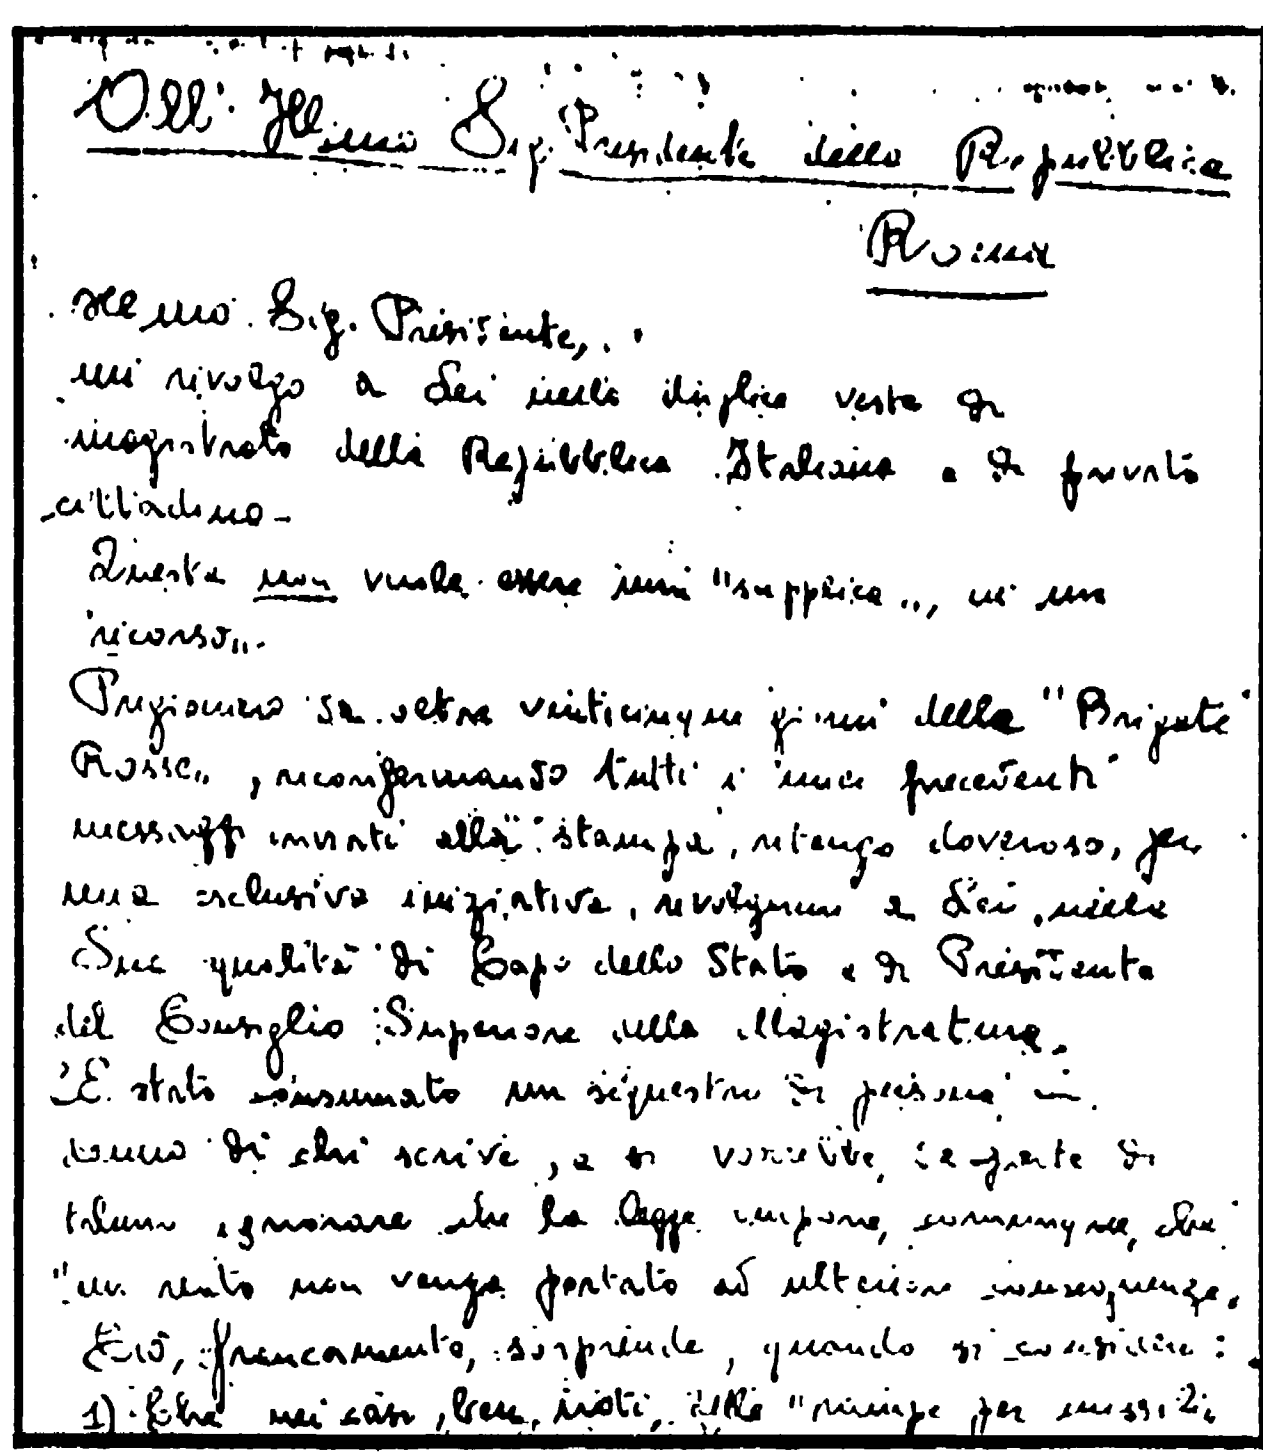 All' Ill.imo Sig. Presidente della Repubblica
Roma
Ill.mo Sig. Presidente,
mi rivolgo a Lei nella duplice veste di
magistrato della Repubblica Italiana e di privato
cittadino -
Questa non vuole essere una "supplica", né un
"ricorso".
Prigioniero da oltre venticinque giorni delle "Brigate
Rosse", riconfermando tutti i miei precedenti
messaggi inviati alla stampa, ritengo doveroso, per
mia esclusiva iniziativa, rivolgermi a Lei, nella
Sua qualità di Capo dello Stato e di Presidente
del Consiglio Superiore della Magistratura.
È stato consumato un sequestro di persona in
danno di chi scrive, e si vorrebbe, da parte di
taluno ignorare che la legge impone, comunque, che
"un reato non venga portato ad ulteriori conseguenze.
Ciò, francamente, sorprende, quando si consideri:
1) Che nei casi, ben noti, delle "rampe per missili